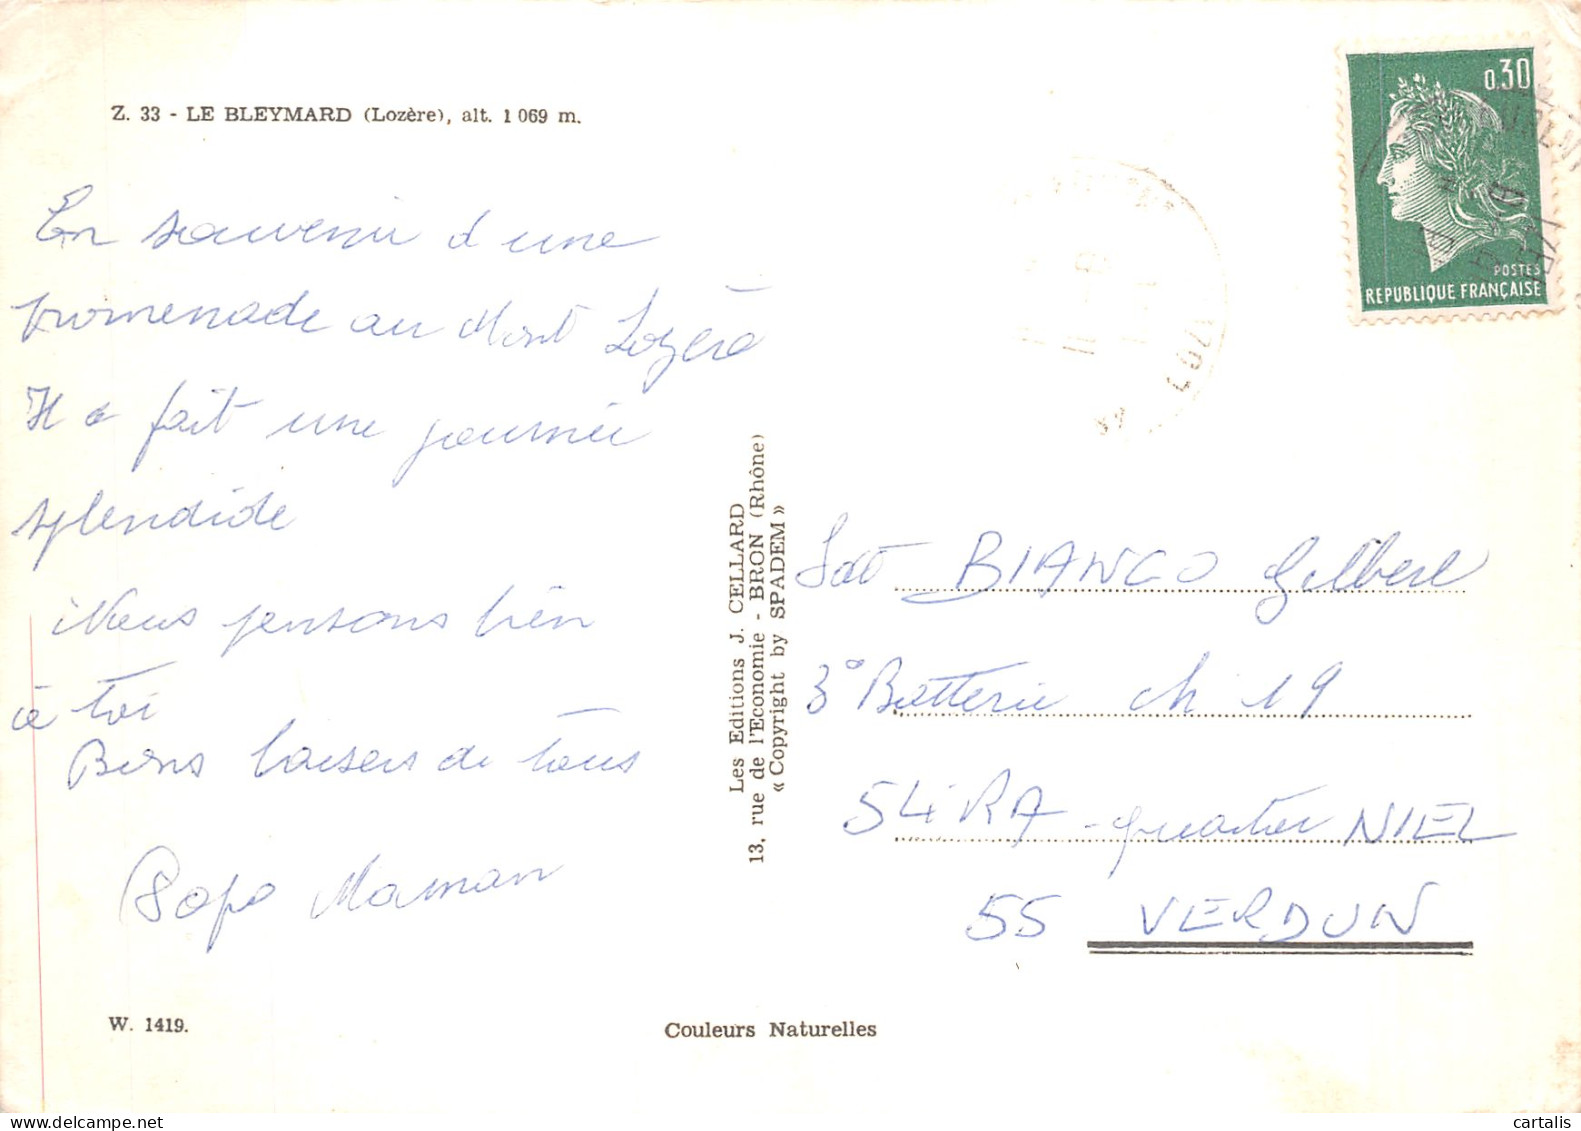 Z. 33 - LE BLEYMARD (Lozère), alt. 1 069 m.
En souvenir d'une
promenade au Mont Lozère
Il a fait une journée
splendide
Nous pensons bien
à toi
Bons baisers de tous
Papa Maman
W. 1419.
Couleurs Naturelles
Les Editions J. CELLARD
13, rue de l'Economie - BRON (Rhône)
« Copyright by SPADEM »
0,30
POSTES
REPUBLIQUE FRANÇAISE
BIANCO Gilbert
3° Batterie ch 19
54 RA - quartier NIEL
55 VERDUN
cartalis